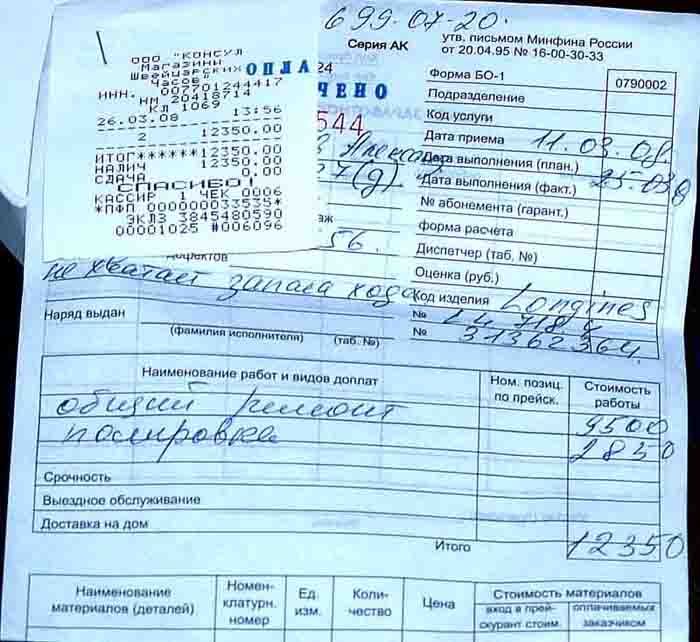 699-07-20.
Серия АК
утв. письмом Минфина России
от 20.04.95 № 16-00-30-33
ООО "КОНСУЛ
Магазины
Швейцарских
Часов
ИНН. 007701244417
НМ 20418714
КЛ 1069
26.03.08 13:56
2 12350.00
ИТОГ******12350.00
НАЛИЧ 12350.00
СДАЧА 0.00
СПАСИБО!
КАССИР 1 ЧЕК 0006
*ПФП 000000033535*
ЭКЛЗ 3845480590
00001025 #006096
ОПЛА
ЧЕНО
24
544
Форма БО-1 0790002
Подразделение
Код услуги
Дата приема 11.03.08.
Дата выполнения (план.)
Дата выполнения (факт.) 25.03.
№ абонемента (гарант.)
форма расчета
Диспетчер (таб. №)
Оценка (руб.)
Код изделия Longines
№ L4 718 4
№ 31362364.
27(g).
56.
дефектов
не хватает запаса хода
Наряд выдан
(фамилия исполнителя) (таб. №)
Наименование работ и видов доплат Ном. позиц. по прейск. Стоимость работы
общий ремонт 9500
полировка 2850
Срочность
Выездное обслуживание
Доставка на дом
Итого 12350
Наименование материалов (деталей) Номен-клатурн. номер Ед. изм. Коли-чество Цена Стоимость материалов
вход в прей-скурант стоим. оплачиваемых заказчиком